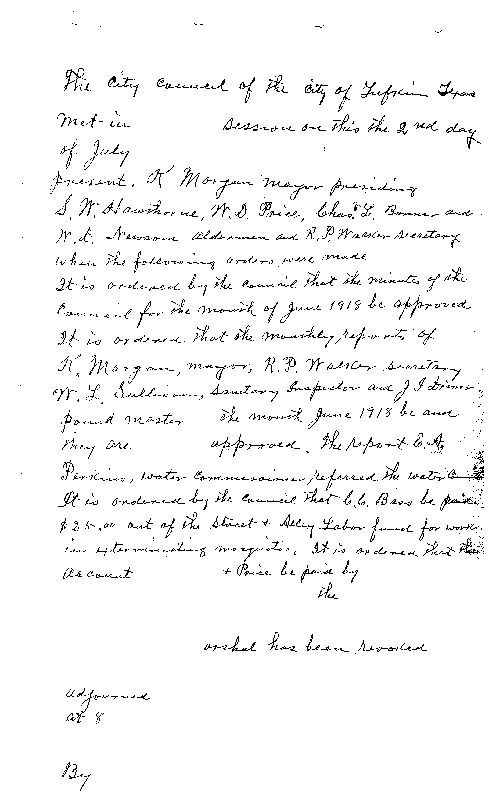 The City Council of the City of Lufkin Texas
Met in session on this the 2nd day
of July
present. K Morgan mayor presiding
S. W. Hawthorne, W. D. Price, Chas. L. Bonner and
W. L. Newsom Aldermen and R. P. Walker Secretary
when the following orders were made
It is ordered by the Council that the minutes of the
Council for the month of June 1918 be approved
It is ordered that the monthly reports of
K. Morgan, mayor, R. P. Walker Secretary
W. L. Sullivan, Sanitary Inspector and J. I.
pound master the month June 1918 be and
they are approved. The report E. A.
Perkins, water commissioner, referred the water
It is ordered by the council that C. C. Bass be paid
$25.00 out of the Street & Alley Labor fund for work
in exterminating mosquitos. It is ordered that the
account & Price be paid by
the
arshal has been revoked
adjourned
at 8
By